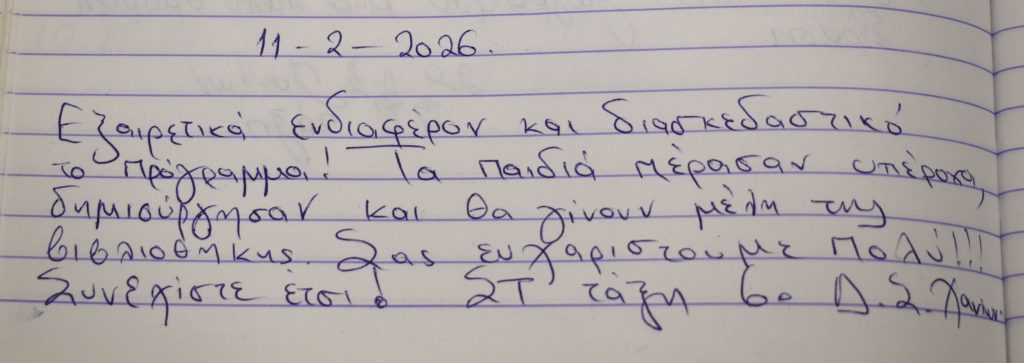 11-2-2026.
Εξαιρετικά ενδιαφέρον και διασκεδαστικό
το πρόγραμμα! Τα παιδιά πέρασαν υπέροχα,
δημιούργησαν και θα γίνουν μέλη της
βιβλιοθήκης. Σας ευχαριστούμε πολύ!!!
Συνεχίστε έτσι! ΣΤ' τάξη 6ο Δ.Σ. Χανίων.